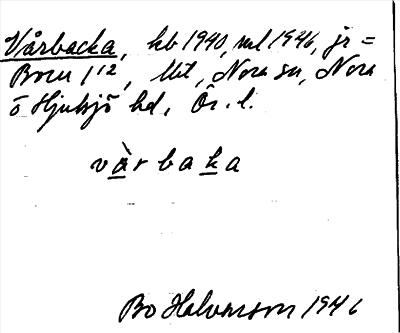 Vårbacka, kb 1940, ml 1946, jr =
Born 1¹², Utt, Nora sn, Nora
o Hjulsjö hd, Ör. l.
vàrbaka
Bo Halvarson 1946